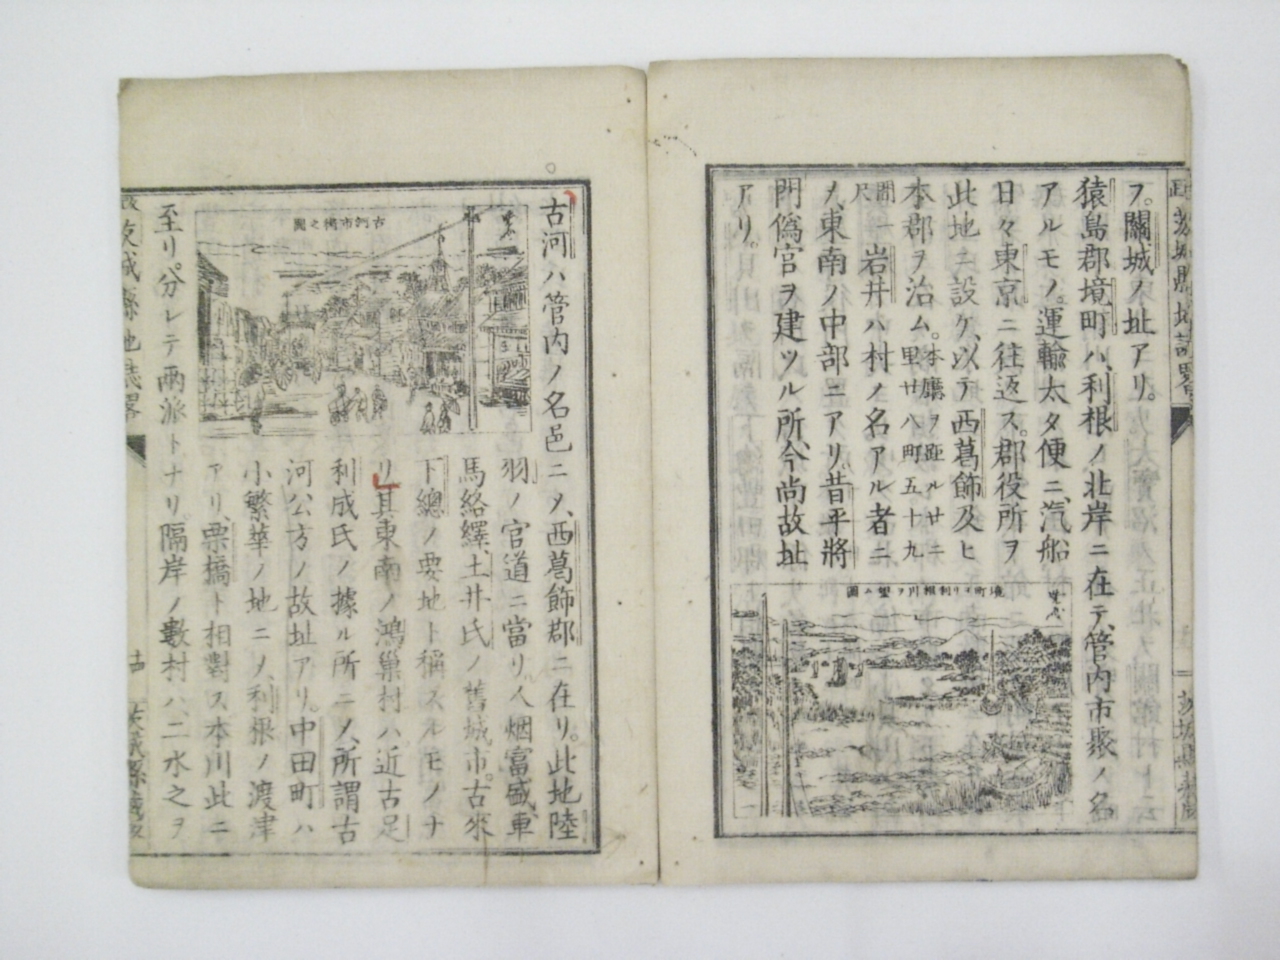 フ。關城ノ址アリ。
猿島郡境町ハ、利根ノ北岸ニ在テ、管內市聚ノ名
アルモノ。運輸太タ便ニ、汽船
日々東京ニ往返ス。郡役所ヲ
此地ニ設ケ、以テ西葛飾及ヒ
本郡ヲ治ム。本廳ヲ距ル廿二
里廿八町五十九
間一
尺
岩井ハ村ノ名アル者ニ
〆、東南ノ中部ニアリ。昔平將
門僞官ヲ建ツル所、今尚故址
アリ。
境町ヨリ利根川ヲ望ム圖
古河ハ管內ノ名邑ニ〆、西葛飾郡ニ在リ。此地陸
羽ノ官道ニ當リ、人烟富盛、車
馬絡繹、土井氏ノ舊城市。古來
下總ノ要地ト稱スルモノナ
リ其東南ノ鴻巢村ハ、近古足
利成氏ノ據ル所ニ〆、所謂古
河公方ノ故址アリ。中田町ハ
小繁華ノ地ニ〆、利根ノ渡津
アリ、栗橋ト相對ス本川此ニ
至リ分レテ兩派トナリ。隔岸ノ數村ハ、二水之ヲ
古河市街之圖
茨城縣地誌畧
十四